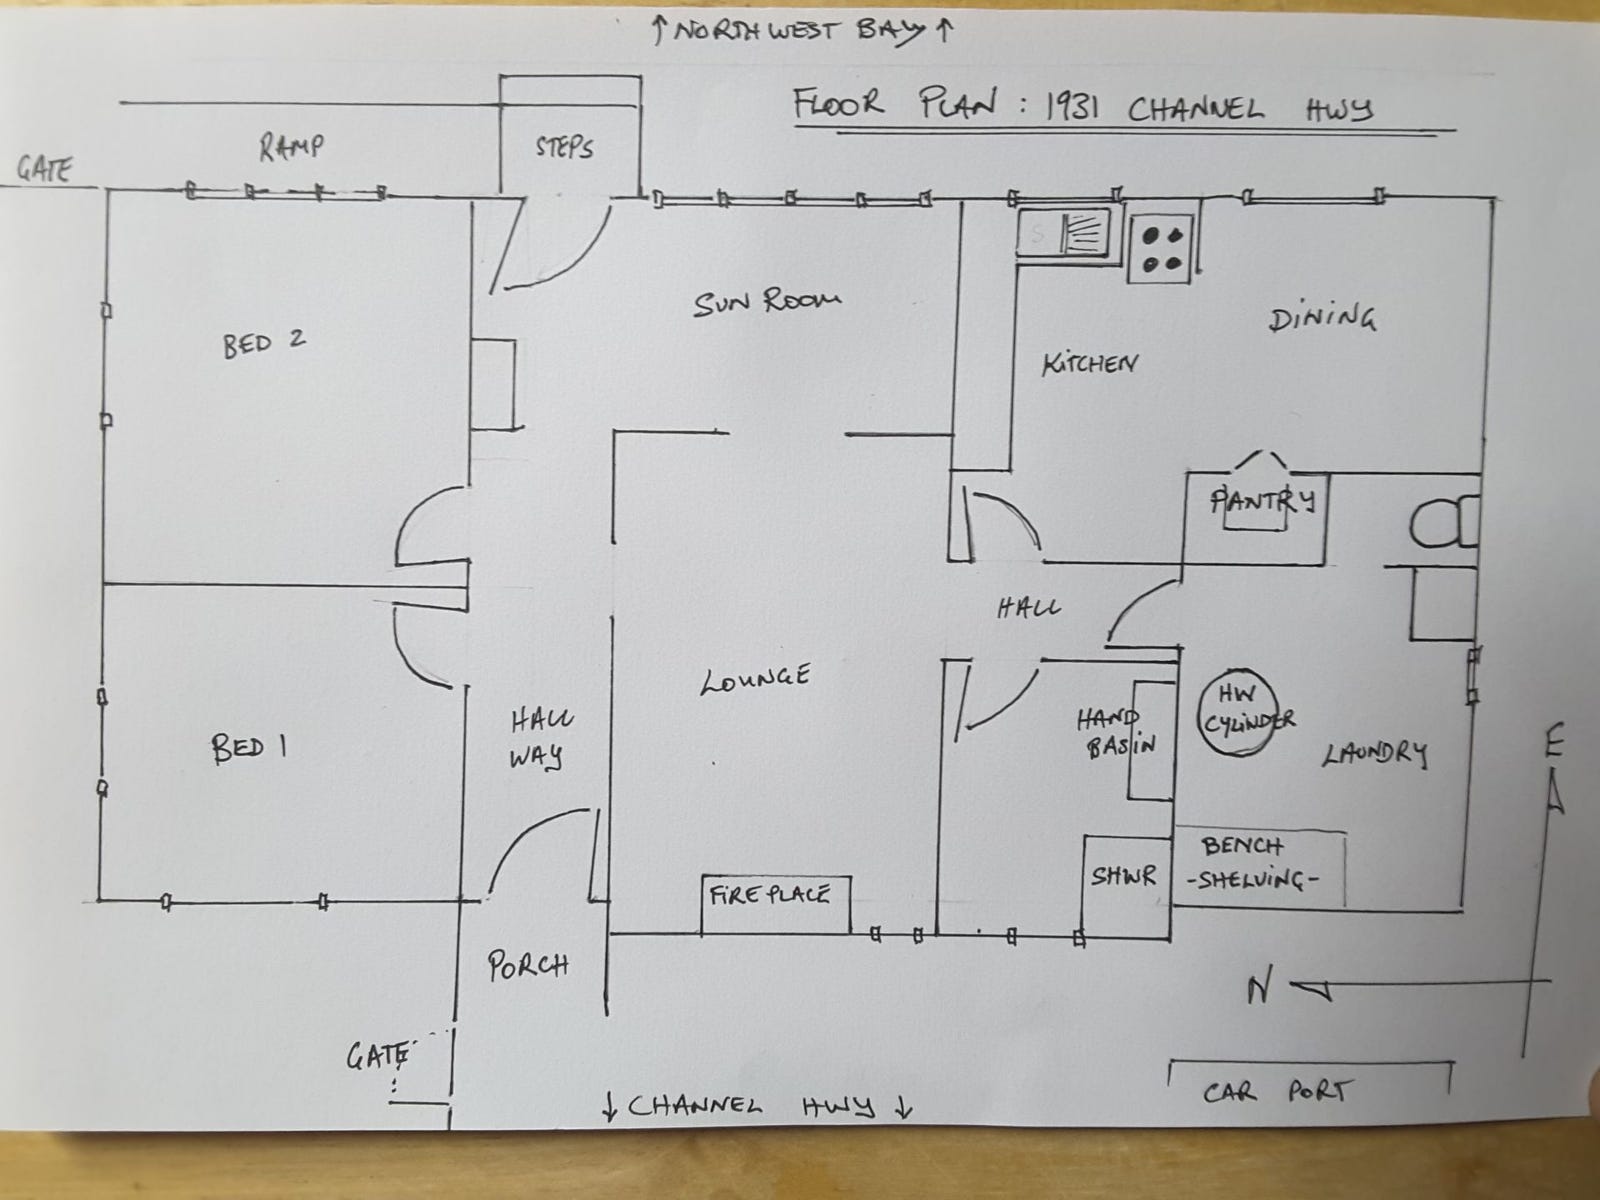 ↑ NORTHWEST BAY ↑
FLOOR PLAN : 1931 CHANNEL HWY
RAMP
STEPS
GATE
SUN ROOM
BED 2
DINING
KITCHEN
PANTRY
HALL
LOUNGE
HAND
BASIN
HW
CYLINDER
LAUNDRY
BED 1
HALL
WAY
E
BENCH
-SHELVING-
SHWR
FIREPLACE
PORCH
N
GATE
CAR PORT
↓ CHANNEL HWY ↓